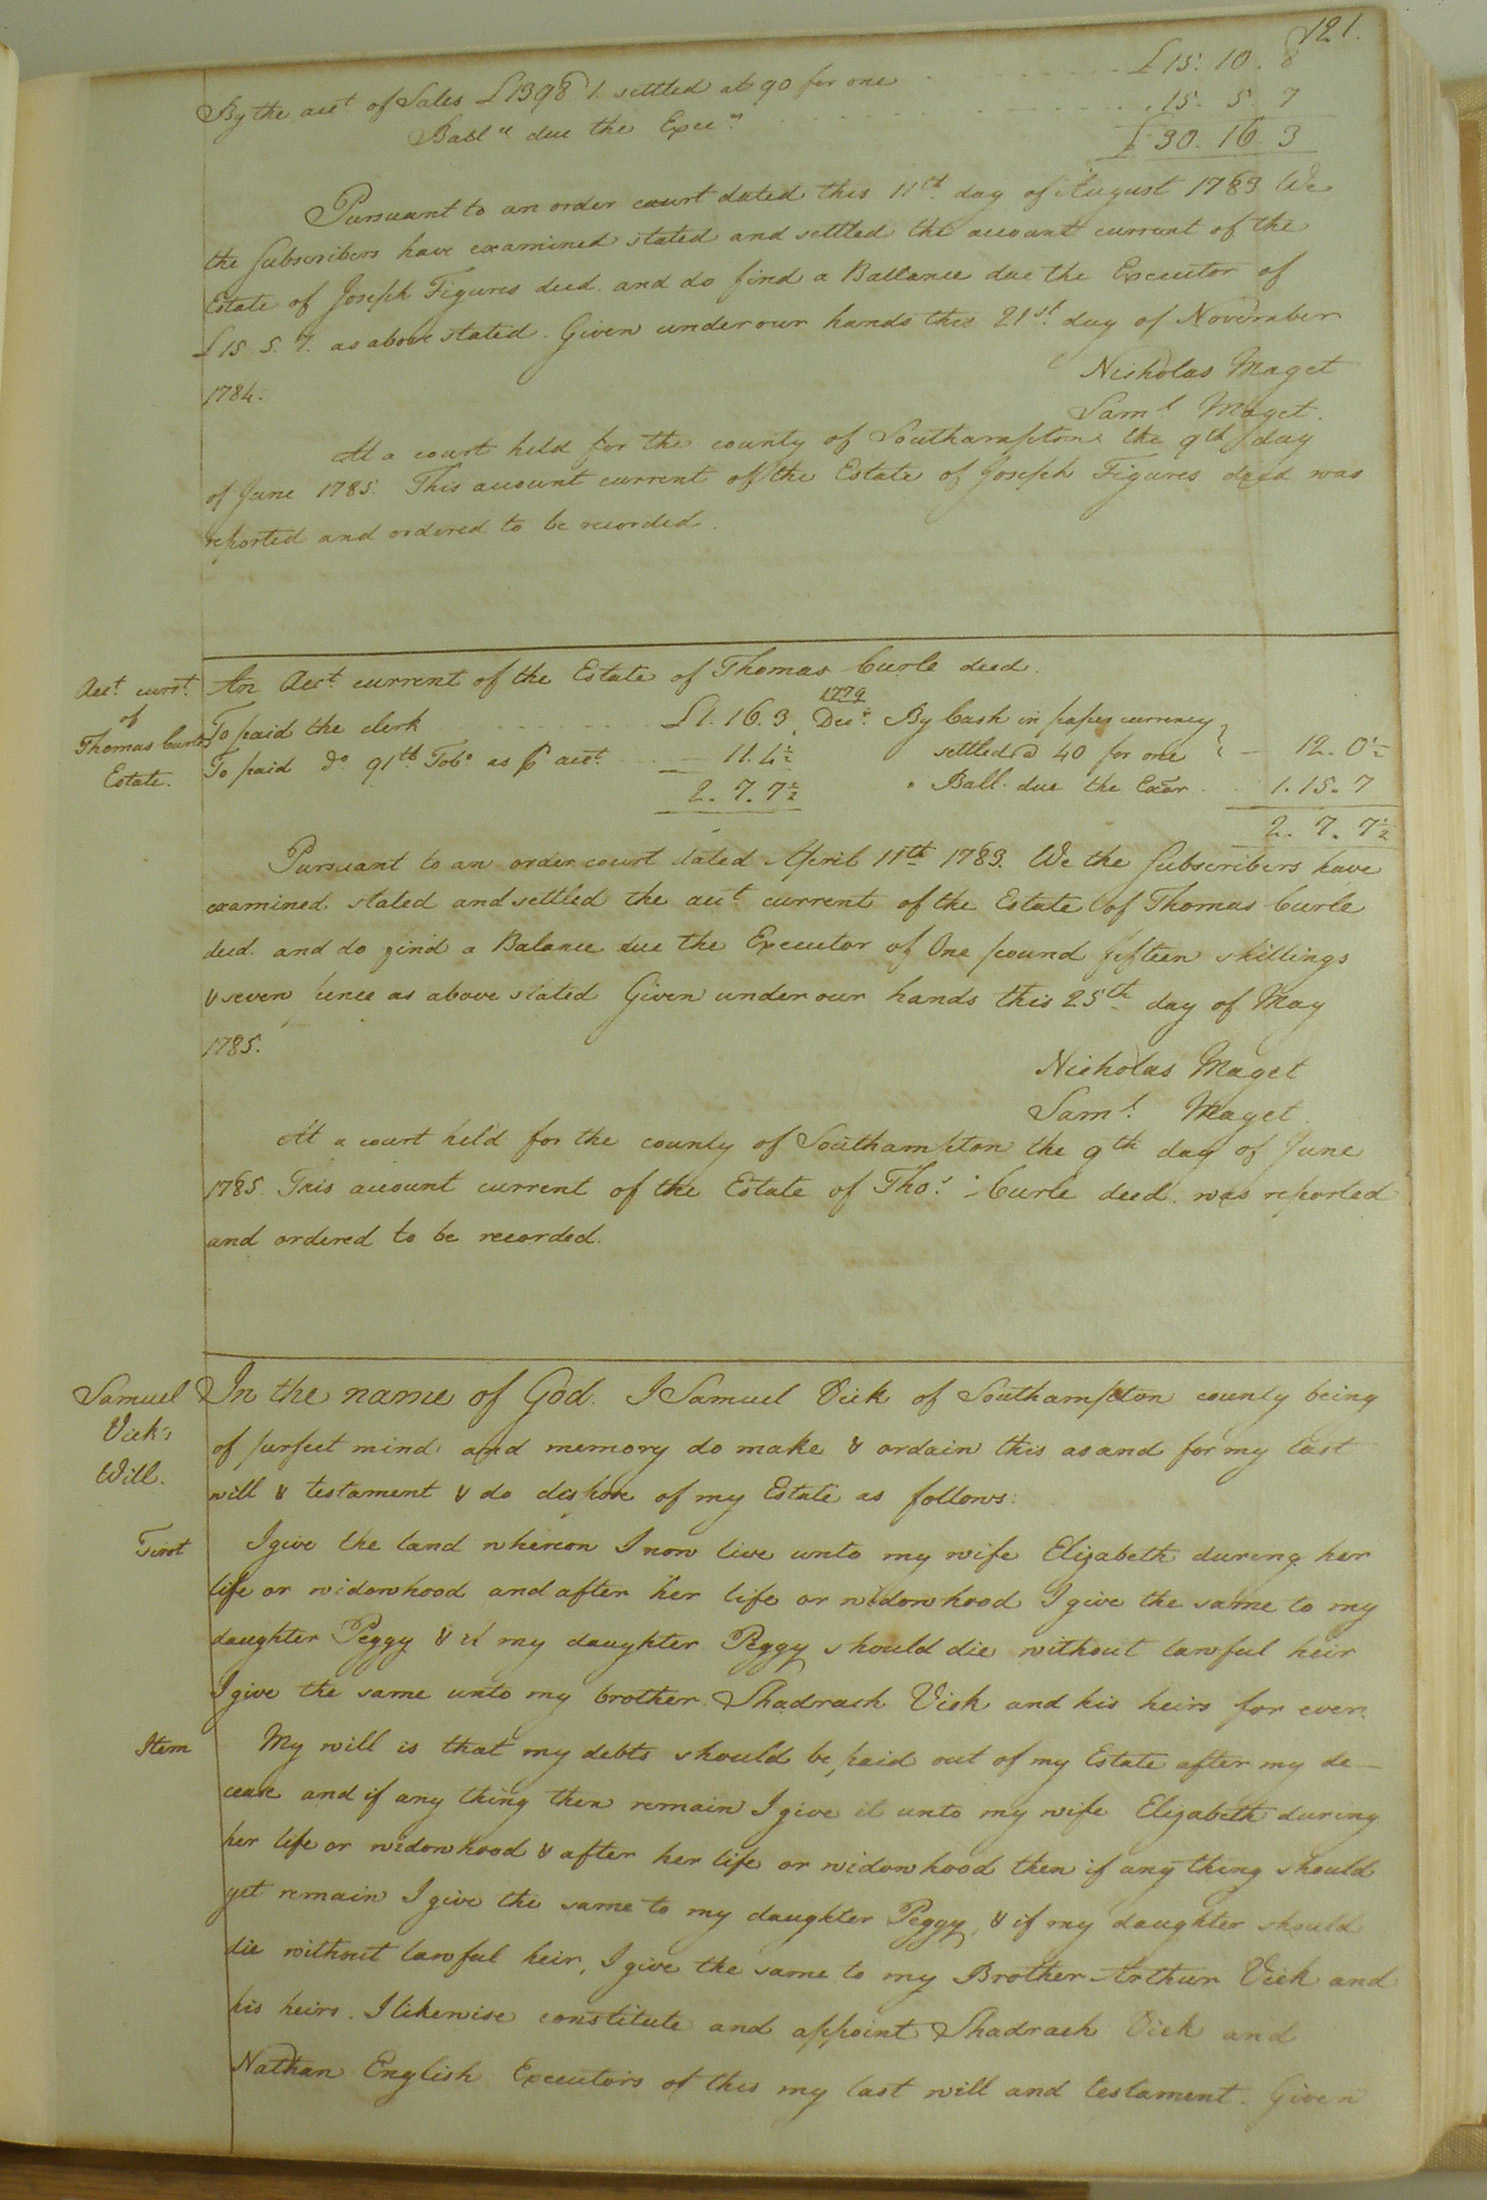 121.
By the acct of Sales £1398.1. settled at 90 for one £15. 10. 8
Balle due the Exers 15. 5. 7
£30. 16. 3
Pursuant to an order court dated this 11th day of August 1783 We
the Subscribers have examined stated and settled the account current of the
Estate of Joseph Figures decd. and do find a Ballance due the Executor of
£15. 5. 7. as above stated. Given under our hands this 21st day of November
1784.
Nicholas Maget
Saml. Maget.
At a court held for the county of Southampton the 9th day
of June 1785. This account current of the Estate of Joseph Figures decd was
reported and ordered to be recorded.
Acct. currt.
of
Thomas Curles
Estate.
An Acct. current of the Estate of Thomas Curle decd.
1779
To paid the clerk £1. 16. 3 Decr. By Cash in paper currency
To paid Do 91lb Tobo as p acct. 11. 4½ settled @ 40 for one 12. 0½
2. 7. 7½ " Ball. due the Exor 1. 15. 7
2. 7. 7½
Pursuant to an order court dated April 11th 1783. We the Subscribers have
examined stated and settled the acct current of the Estate of Thomas Curle
decd. and do find a Balance due the Executor of One pound fifteen shillings
& seven pence as above stated Given under our hands this 25th day of May
1785.
Nicholas Maget
Saml. Maget.
At a court held for the county of Southampton the 9th day of June
1785 This account current of the Estate of Thos. Curle decd. was reported
and ordered to be recorded.
Samuel
Vick's
Will.
In the name of God. I Samuel Vick of Southampton county being
of purfect mind and memory do make & ordain this as and for my last
will & testament & do dispose of my Estate as follows:
First I give the land whereon I now live unto my wife Elizabeth during her
life or widowhood and after her life or widowhood I give the same to my
daughter Peggy & if my daughter Peggy should die without lawful heir
I give the same unto my brother Shadrach Vick and his heirs for ever.
Item My will is that my debts should be paid out of my Estate after my de-
cease and if any thing then remain I give it unto my wife Elizabeth during
her life or widowhood & after her life or widowhood then if any thing should
yet remain I give the same to my daughter Peggy, & if my daughter should
die without lawful heir, I give the same to my Brother Arthur Vick and
his heirs. I likewise constitute and appoint Shadrach Vick and
Nathan English Executors of this my last will and testament. Given